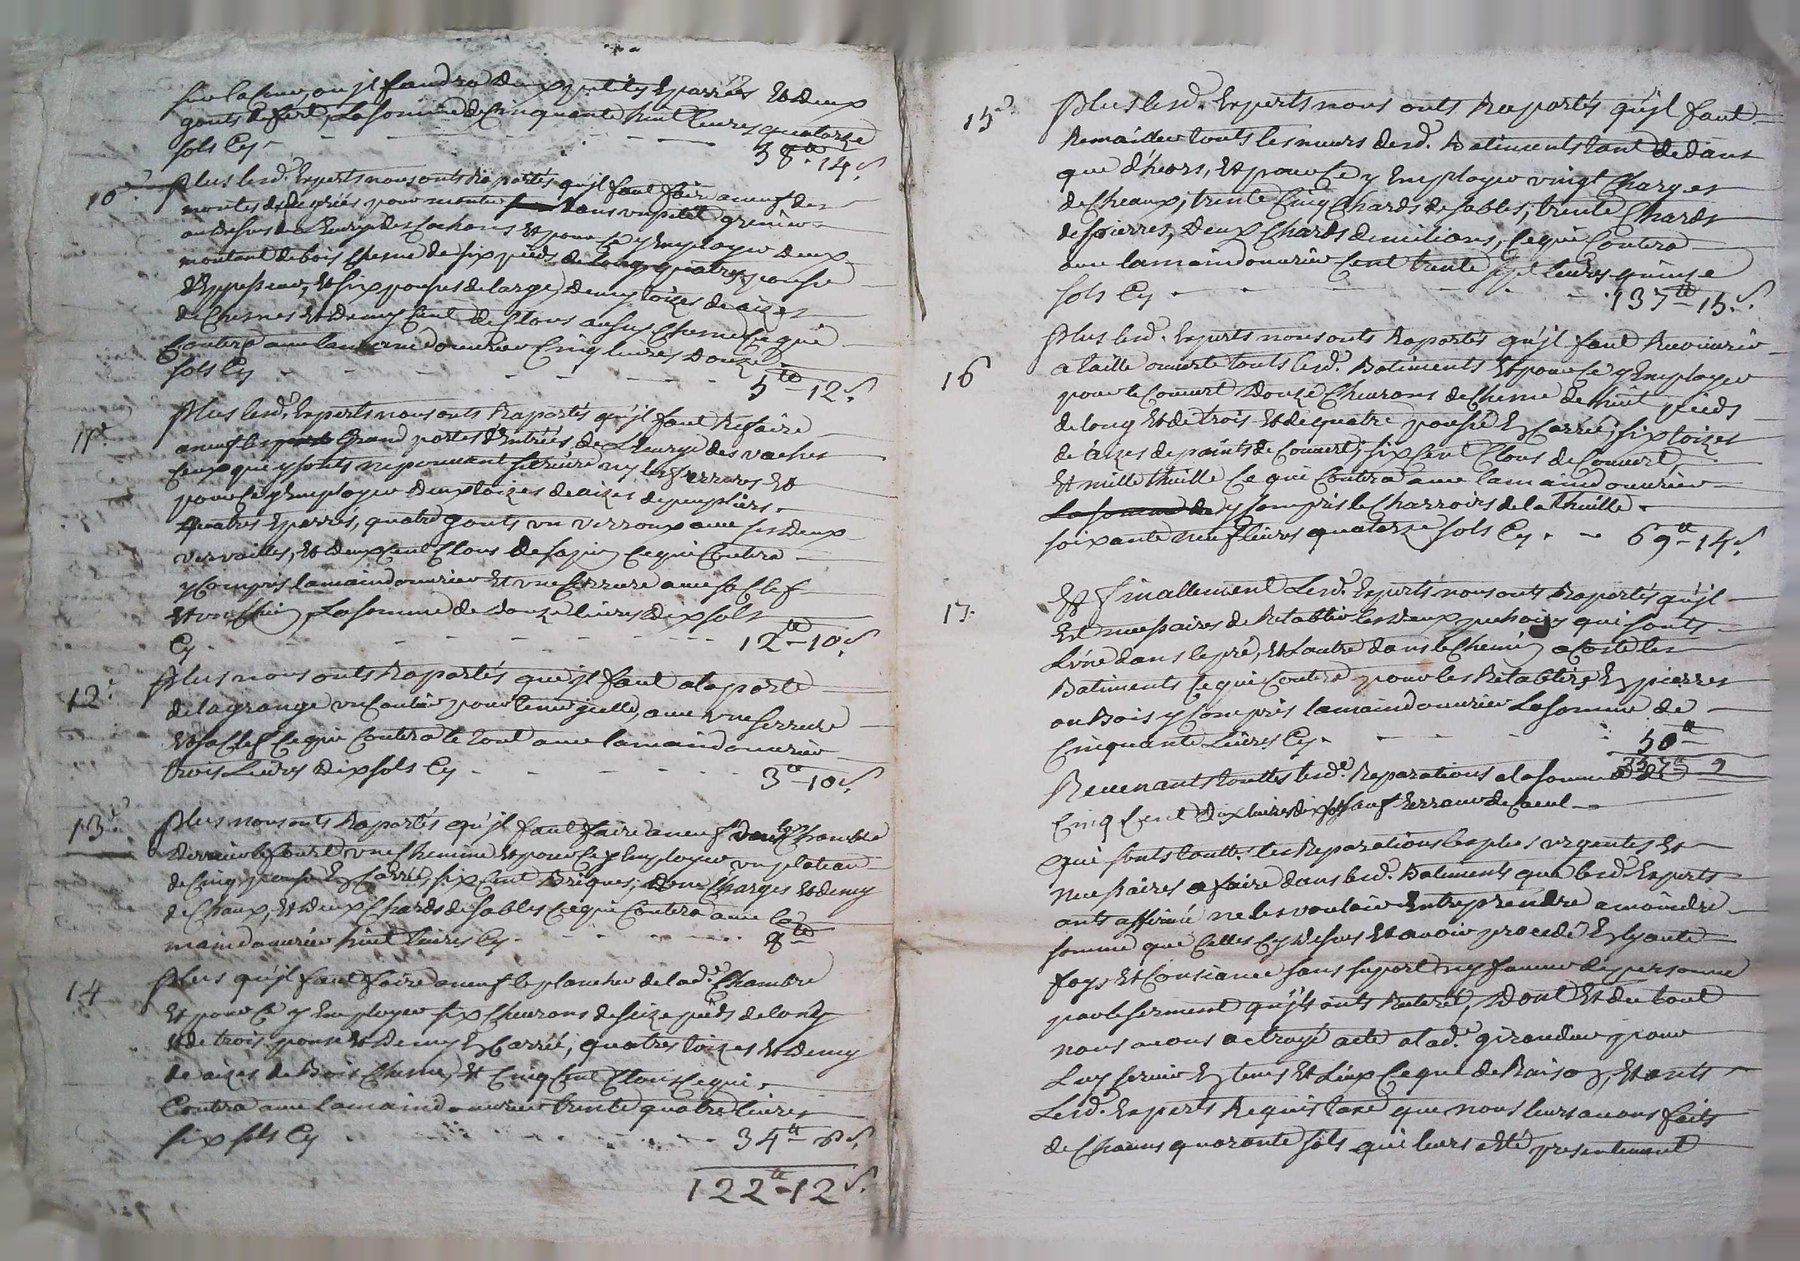 sur la cour, ou jl faudra deux petites Eparres Et deux
gonts de fert, La somme de Cinquante huit livres quatorze
sols Cy - 58ᵗᵗ 14 s.
10ᵉ. Plus lesd. Experts nous onts Raportés qu'jl faut faire a neuf des
montes de degrées pour monter dans un petit grenier
au desus des Eurye des Cochons Et pour Ce y Employer deux
montant de bois Chesne de six pieds de long quatres pouse
d'Eppesseur, Et six pouses de large, demy toizes de aizes
de Chesnes Et demy Cent de Clous
Coutera avec la main d'ouvrier Cinq livres douze
sols Cy 5ᵗᵗ - 12 s.
11ᵉ. Plus lesd. Experts nous onts Raportés qu'jl faut Refaire
a neuf les grand portes d'Entrées de L'Eurye des vaches
Ceux qui y sonts ne pouvant servire ny les ferrures Et
pour Ce y Employer deux toizes de aizes de peupliers
quatres Eparres, quatre gonts un verroux avec ses deux
vervailles, Et deux Cent Clous de sapin Ce qui Coutera
y Compris la main d'ouvrier Et une serrure avec sa Clef
La somme de douze livres dix sols
Cy 12ᵗᵗ - 10 s.
12ᵉ. Plus nous onts Raportés que jl faut a la porte
de la grange avec une serrure
Et sa Clef Ce qui Coutera le tout avec la main d'ouvrier
trois Livres dix sols Cy 3ᵗᵗ - 10 s.
13ᵉ. Plus nous onts Raportés qu'jl faut faire a neuf dans la Chambre
derrier le fourt une Chemine Et pour Ce y Employer un plateau
de Cinq pouse En Carré, six Cent Briques, deux Charges Et demy
de Chaux, Et deux Chards de sables Ce qui Coutera avec la
main d'ouvrier huit livres Cy 8ᵗᵗ
14 Plus qu'jl faut faire a neuf le plancher de lad. Chambre
Et pour Ce y Employer six Chevrons de seize pieds de long
Et de trois pouse Et demy En Carré, quatres toizes Et demy
de aizes de Bois Chesne, Et Cinq Cent Clous Ce qui
Coutera avec la main d'ouvrier trente quatre livres
six sols Cy 34ᵗᵗ 6 s.
122ᵗᵗ - 12 s.
15ᵉ Plus lesd. Experts nous onts Raportés qu'jl faut
Remailler touts les meurs desd. Batiments tant dedans
que d'heors, Et pour Ce y Employer vingt Charges
de Cheaux, trente Cinq Chards de sables, trente Chards
de pierres, deux Chards Ce qui Coutera
avec la main d'ouvrier Cent trente sept livres quinze
sols Cy 137ᵗᵗ 15 s.
16 Plus lesd. Experts nous onts Raportés qu'jl faut Recouvrir
a taille ouverte touts lesd. Batiments Et pour Ce y Employer
pour le Couvert douze Chevrons de Chesne de huit pieds
de long Et de trois Et de quatre pouse En Carré, six toizes
de aizes de points de Couvert, six Cent Clous de Couvert,
Et mille thuille Ce qui Coutera avec la main d'ouvrier
La somme de y Compris le Charroirs de la thuille
soixante neuf livres quatorze sols Cy 69ᵗᵗ - 14 s.
17. Et finallement Lesd. Experts nous onts Raportés qu'jl
Est necessaires de Retablir les deux qui sonts
L'vne dans le pré, Et L'autre dans le Chemin a Costé les
Batiments Ce qui Coutera pour les Retablires En pierres
ou Bois y Compris la main d'ouvrier La somme de
Cinquante Livres Cy. 50ᵗᵗ
Revenants touttes lesd. Reparations a la somme de
Cinq Cent dix livres dix sols sauf Erreur de Caeul
Qui sonts toutt. les Reparations les plus urgentes Et
necessaires a faire dans lesd. Batiments que lesd. Experts
onts affirmé ne les vouloir Entreprendre a moindre
somme que Celles Cy desus Et avoir procedé En leur ante
foys Et Consiance sans suport ny faveur de personne
par le serment qu'jls onts Reiteré, dont Et du tout
nous avons octroyé acte alad. girondine pour
Luy servir En tems Et Lieux Ce que de Raison, Et onts
Lesd. Experts Requis taxe que nous leurs avons faits
de Chacuns quarante sols qui leurs a Eté presentement